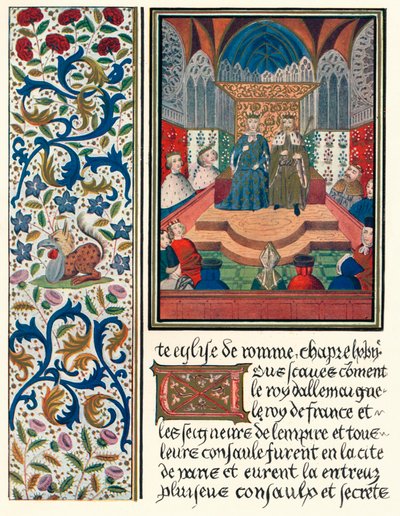 te eglise de romme, chapre lxviij
Vous scaves cōment
le roy dallemaigne
le roy de france et
les seigneurs de lempire et tous
leurs consaulx furent en la cite
de paris et eurent la entreux
pluiseus consaulx et secretz